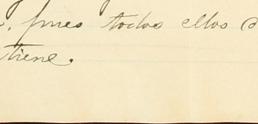 , pues todos ellos
tiene.